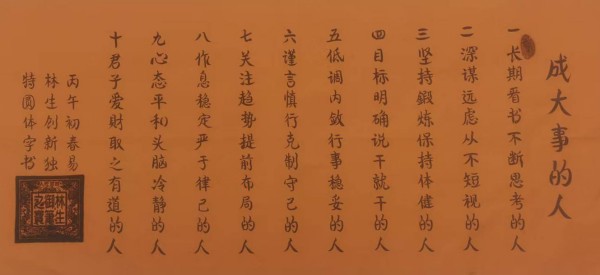 成大事的人
一长期看书不断思考的人
二深谋远虑从不短视的人
三坚持鍛炼保持体健的人
四目标明确说干就干的人
五低调内敛行事稳妥的人
六谨言慎行克制守己的人
七关注趋势提前布局的人
八作息稳定严于律己的人
九心态平和头脑冷静的人
十君子爱财取之有道的人
丙午初春易
林生创新独
特圆体字书
林生
御笔